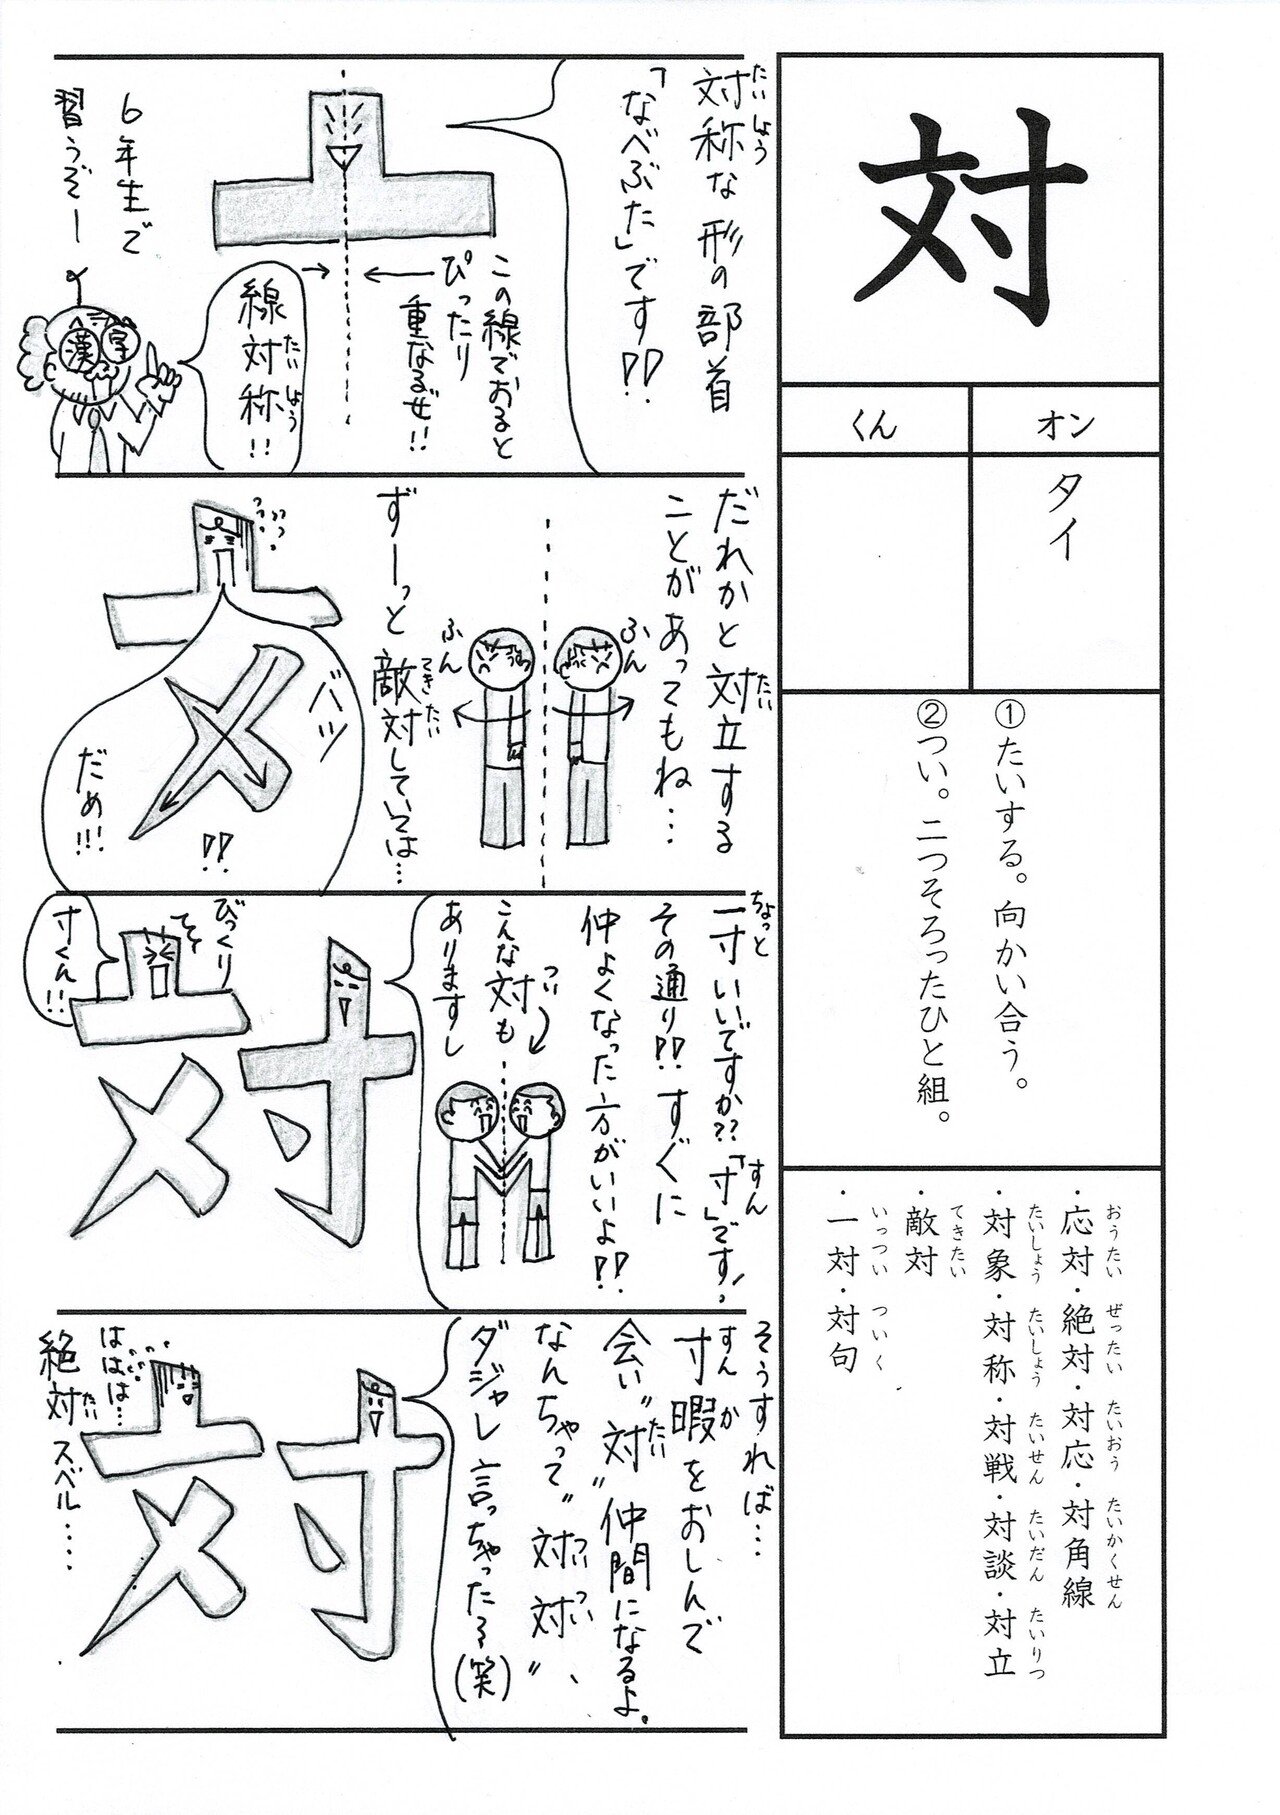 対
オン
くん
タイ
①たいする。向かい合う。
②つい。二つそろったひと組。
おうたい ぜったい たいおう たいかくせん
・応対・絶対・対応・対角線
たいしょう たいしょう たいせん たいだん たいりつ
・対象・対称・対戦・対談・対立
てきたい
・敵対
いっつい ついく
・一対・対句
たいしょう
対称な形の部首
「なべぶた」です!!
この線でおると
ぴったり
重なるぜ!!
たいしょう
線対称!!
6年生で
習うぞー
漢字
だれかと対立する
たい
ことがあってもね…
ふん
ふん
ずーっと敵対していては…
てきたい
バツ
!!
だめ!!!
ちょっと
一寸いいですか??「寸」です!
すん
その通り!!すぐに
仲よくなった方がいいよ!!
こんな対も
つい
ありますし
びっくり
寸くん!!
そうすれば…
すんか
寸暇をおしんで
会い"対"仲間になるよ。
たい
なんちゃって"対対"、
ついつい
ダジャレ言っちゃったる(笑)
ははは…
絶対スベル……
たい